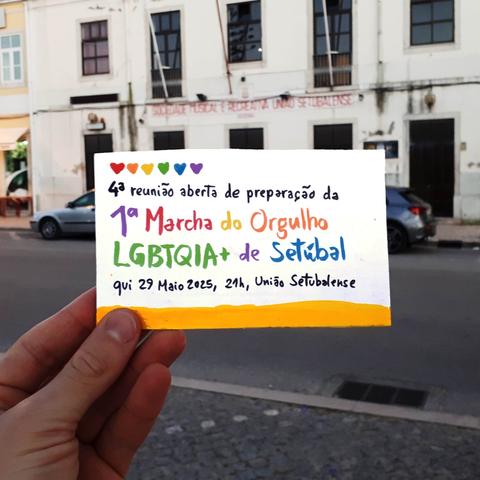 SOCIEDADE MUSICAL E RECREATIVA UNIÃO SETUBALENSE
4ª reunião aberta de preparação da
1ª Marcha do Orgulho
LGBTQIA+ de Setúbal
qui 29 Maio 2025, 21h, União Setubalense